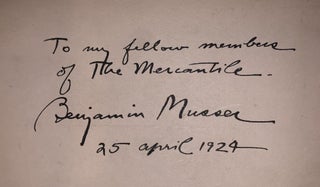 To my fellow members
of The Mercantile.
Benjamin Musser
25 april 1924